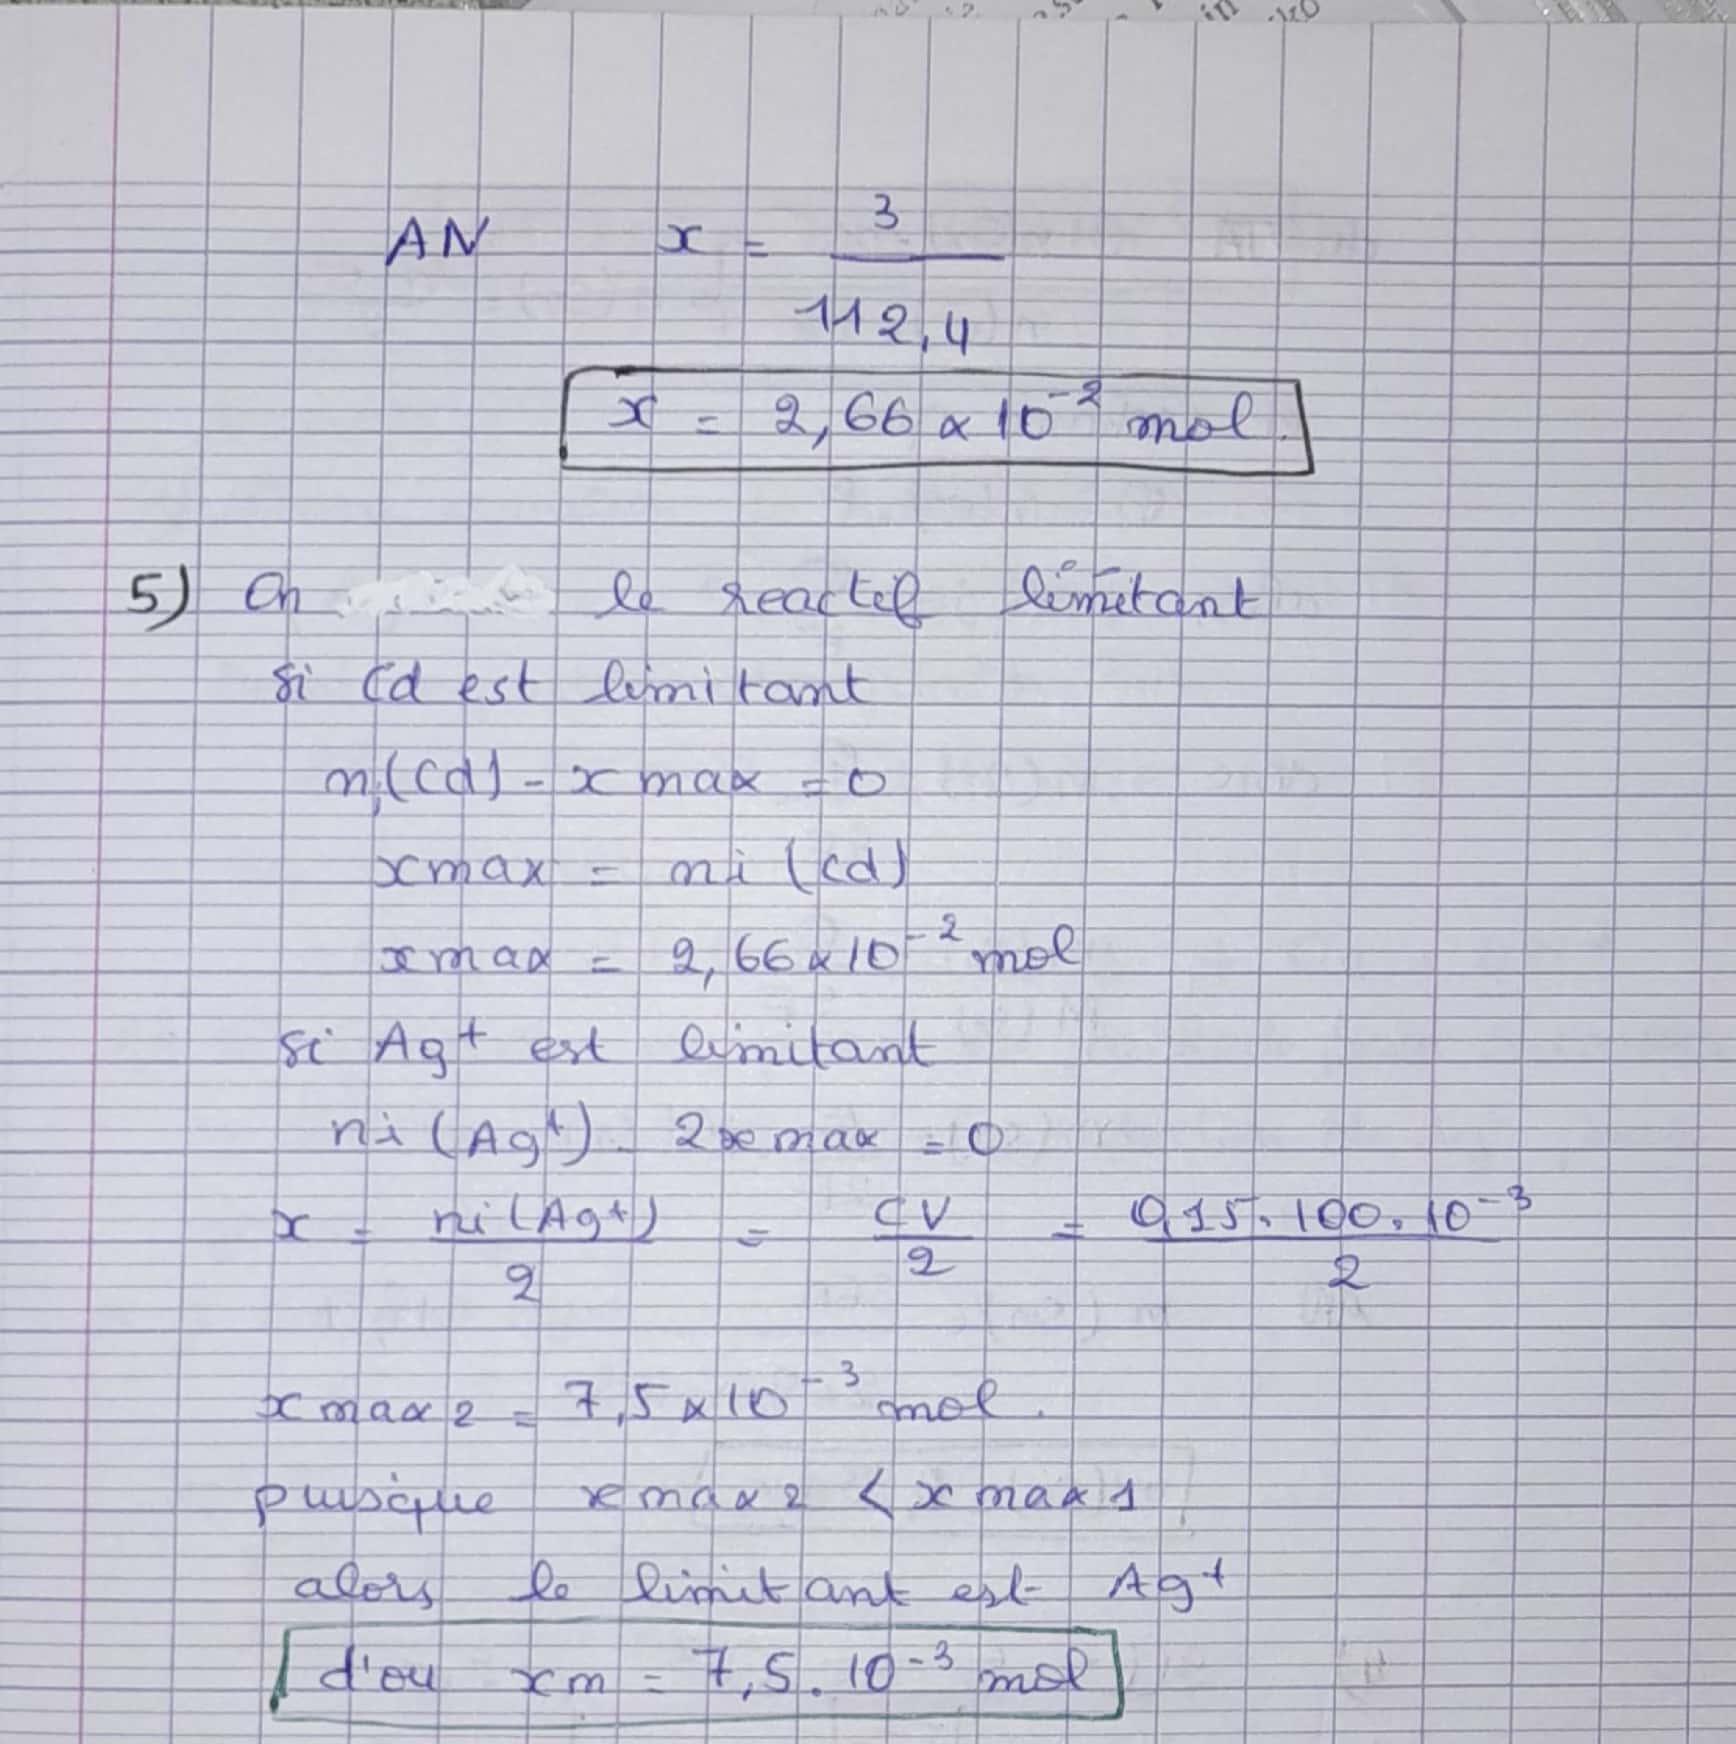 AN x = 3 / 112,4
x = 2,66 x 10⁻² mol.
5) On le reactif limitant
si Cd est limitant
ni(Cd) - x max = 0
xmax = ni (cd)
xmax = 2,66 x 10⁻² mol
si Ag⁺ est limitant
ni (Ag⁺) - 2x max = 0
x = ni (Ag⁺) / 2 = CV / 2 = 0,15. 100. 10⁻³ / 2
x max 2 = 7,5 x 10⁻³ mol.
puisque x max 2 < x max 1
alors le limitant est Ag⁺
d'ou xm = 7,5. 10⁻³ mol